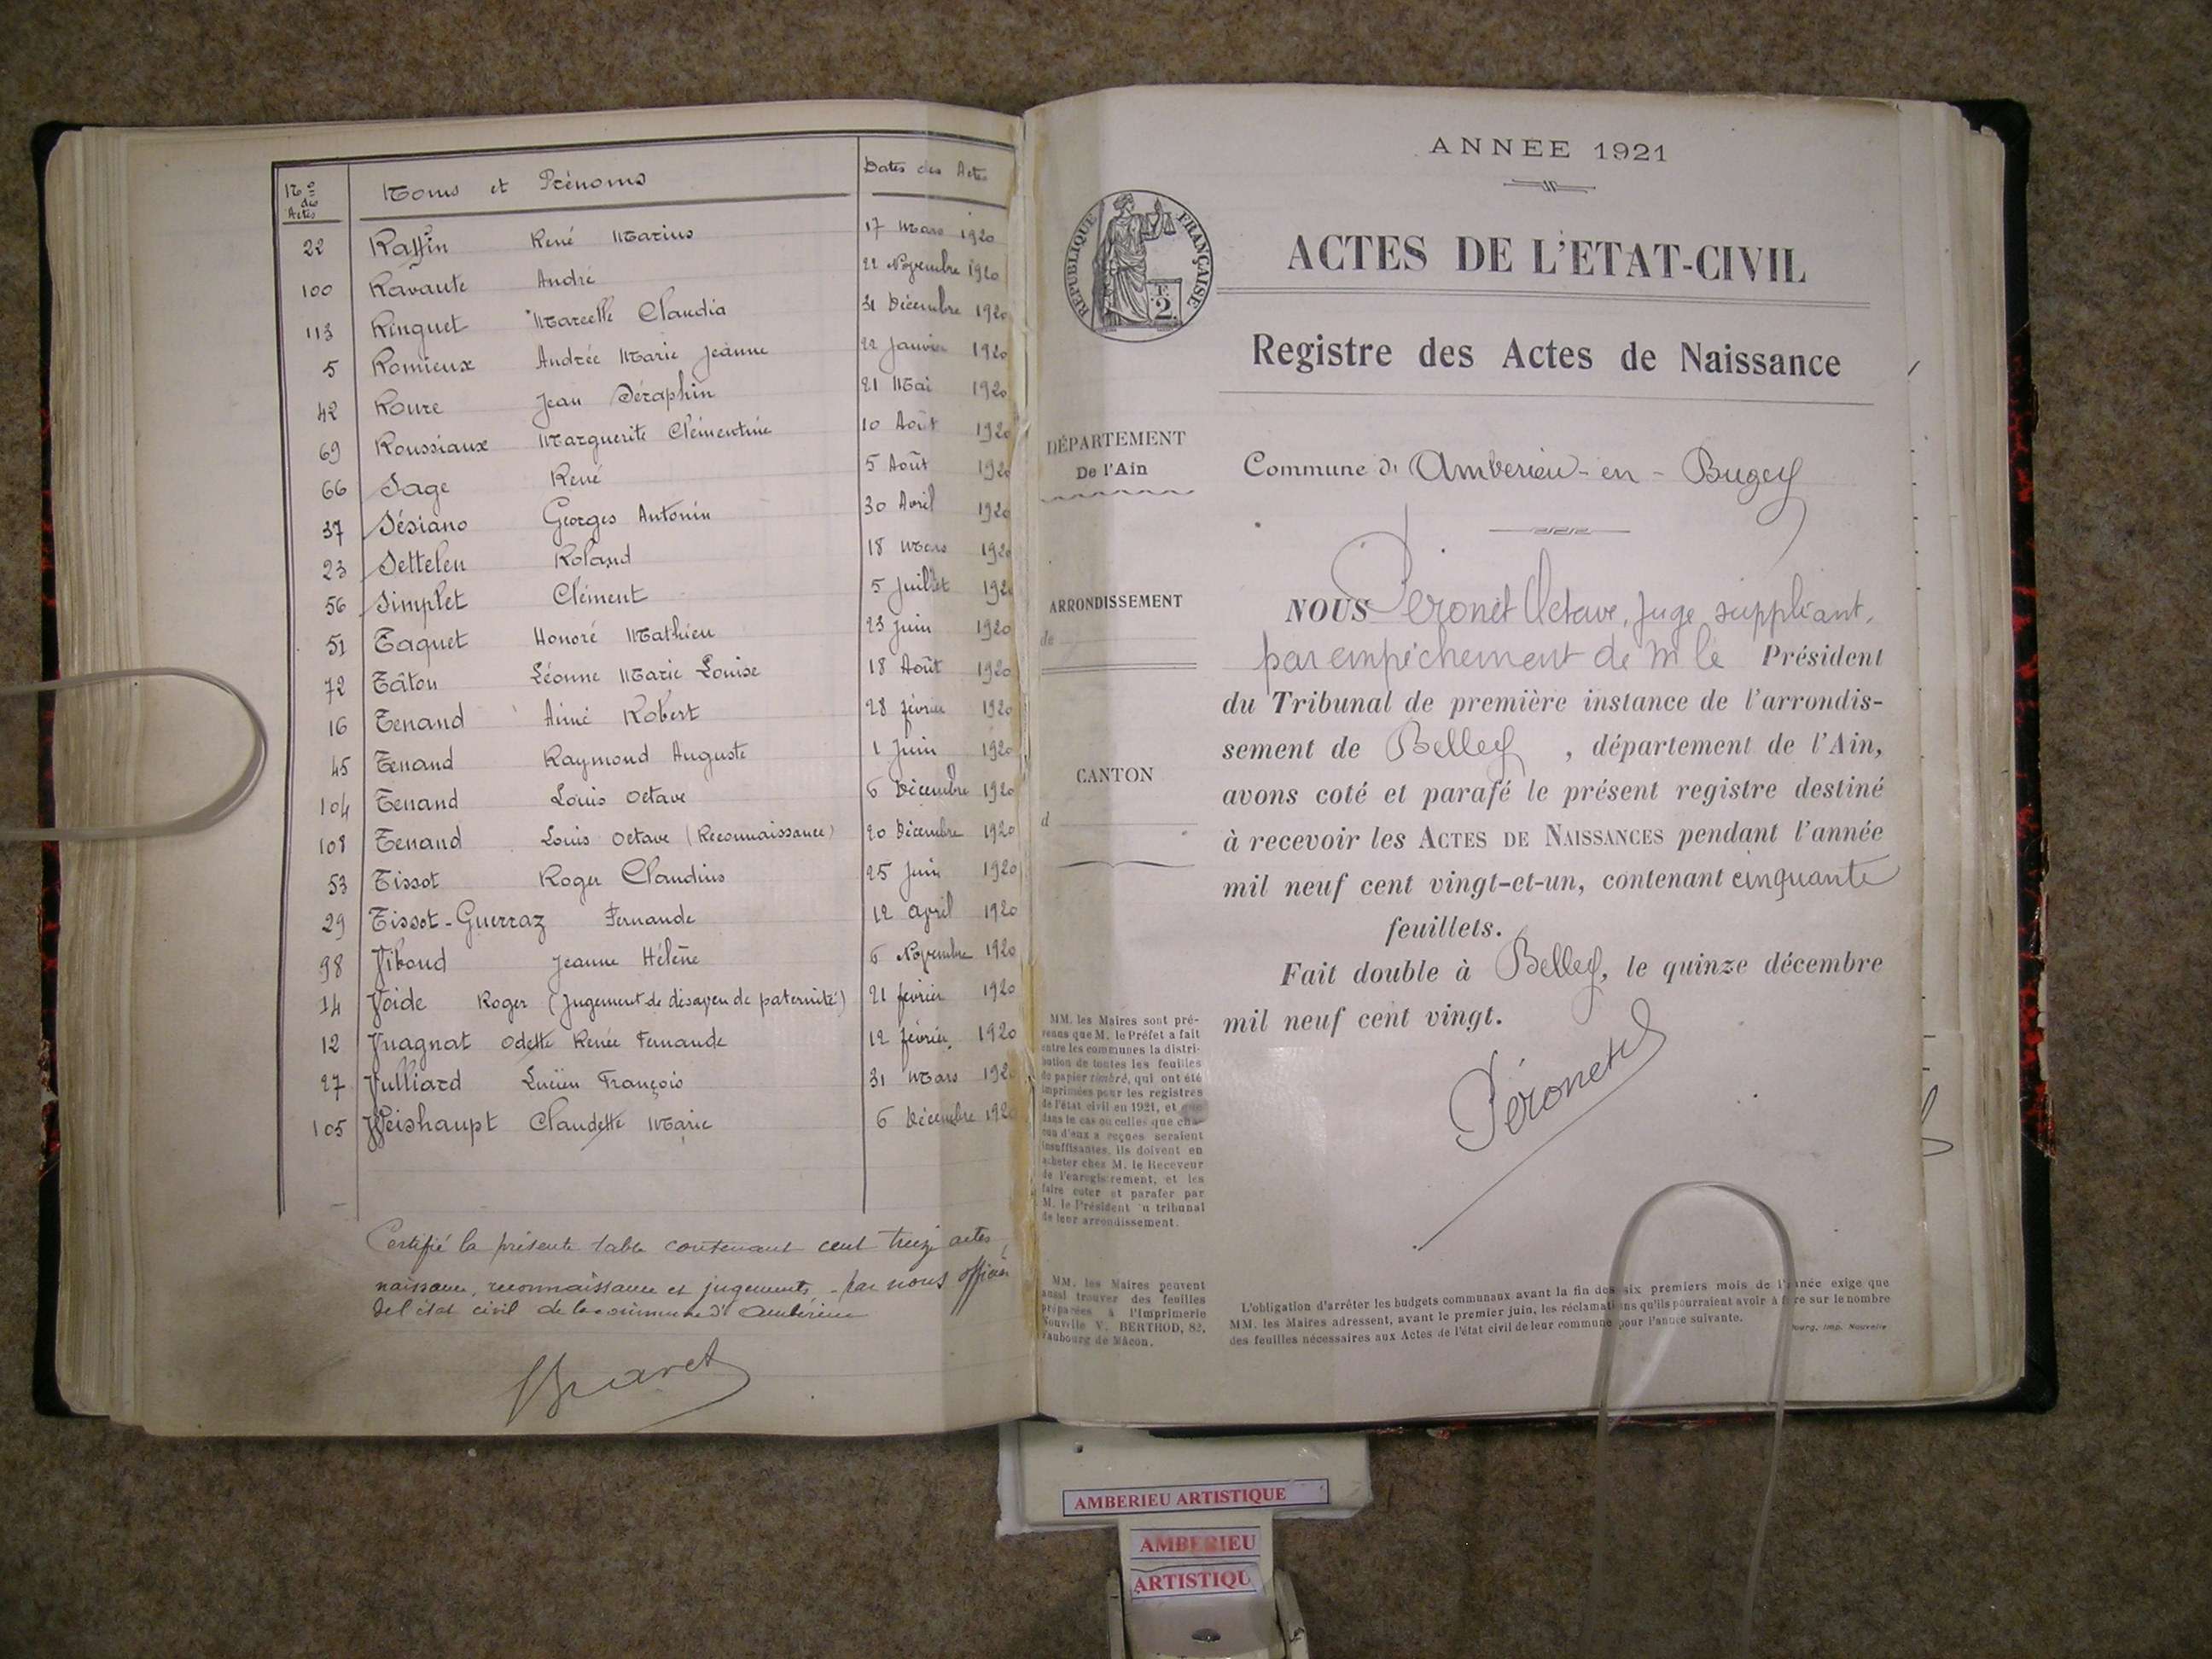 Nos des Actes Noms et Prénoms Dates des Actes
22 Raffin René Marius 17 Mars 1920
100 Ravaute André 22 Novembre 1920
113 Ringuet Marcelle Claudia 31 Décembre 1920
5 Romieux Andrée Marie Jeanne 22 Janvier 1920
42 Roure Jean Séraphin 21 Mai 1920
69 Roussiaux Marguerite Clémentine 10 Août 1920
66 Sage René 5 Août 1920
37 Sésiano Georges Antonin 30 Avril 1920
23 Settelen Roland 18 Mars 1920
56 Simplet Clément 5 Juillet 1920
51 Taquet Honoré Mathieu 23 Juin 1920
72 Tâton Léonne Marie Louise 18 Août 1920
16 Tenand Aimé Robert 28 février 1920
45 Tenand Raymond Auguste 1 Juin 1920
104 Tenand Louis Octave 6 Décembre 1920
108 Tenand Louis Octave (Reconnaissance) 20 Décembre 1920
53 Tissot Roger Claudius 25 Juin 1920
29 Tissot-Guerraz Fernande 12 april 1920
98 Viboud Jeanne Hélène 6 Novembre 1920
14 Voide Roger (Jugement de désaveu de paternité) 21 février 1920
12 Vuagnat Odette Renée Fernande 12 février 1920
27 Vulliard Lucien François 31 Mars 1920
105 Weishaupt Claudette Marie 6 Décembre 1920
Certifié la présente table contenant cent treize actes,
naissance, reconnaissance et jugements, par nous officier
de l'état civil de la commune d'Ambérieu
ANNÉE 1921
RÉPUBLIQUE FRANÇAISE
2
ACTES DE L'ETAT-CIVIL
Registre des Actes de Naissance
DÉPARTEMENT
De l'Ain
Commune d' Amberieu-en-Bugey
ARRONDISSEMENT
de
CANTON
d
NOUS Péronet Octave, juge suppléant,
par empêchement de M le Président
du Tribunal de première instance de l'arrondis-
sement de Belley, département de l'Ain,
avons coté et parafé le présent registre destiné
à recevoir les ACTES DE NAISSANCES pendant l'année
mil neuf cent vingt-et-un, contenant cinquante
feuillets.
Fait double à Belley, le quinze décembre
mil neuf cent vingt.
Péronet
MM. les Maires sont pré-
venus que M. le Préfet a fait
entre les communes la distri-
bution de toutes les feuilles
de papier timbré, qui ont été
imprimées pour les registres
de l'état civil en 1921, et que
dans le cas où celles que cha-
cun d'eux a reçues seraient
insuffisantes, ils doivent en
acheter chez M. le Receveur
de l'enregistrement, et les
faire coter et parafer par
M. le Président du tribunal
de leur arrondissement.
MM. les Maires peuvent
aussi trouver des feuilles
préparées à l'Imprimerie
Nouvelle V. BERTHOD, 82,
Faubourg de Mâcon.
L'obligation d'arrêter les budgets communaux avant la fin des six premiers mois de l'année exige que
MM. les Maires adressent, avant le premier juin, les réclamations qu'ils pourraient avoir à faire sur le nombre
des feuilles nécessaires aux Actes de l'état civil de leur commune pour l'année suivante.
Bourg, Imp. Nouvelle
AMBERIEU ARTISTIQUE
AMBERIEU
ARTISTIQU